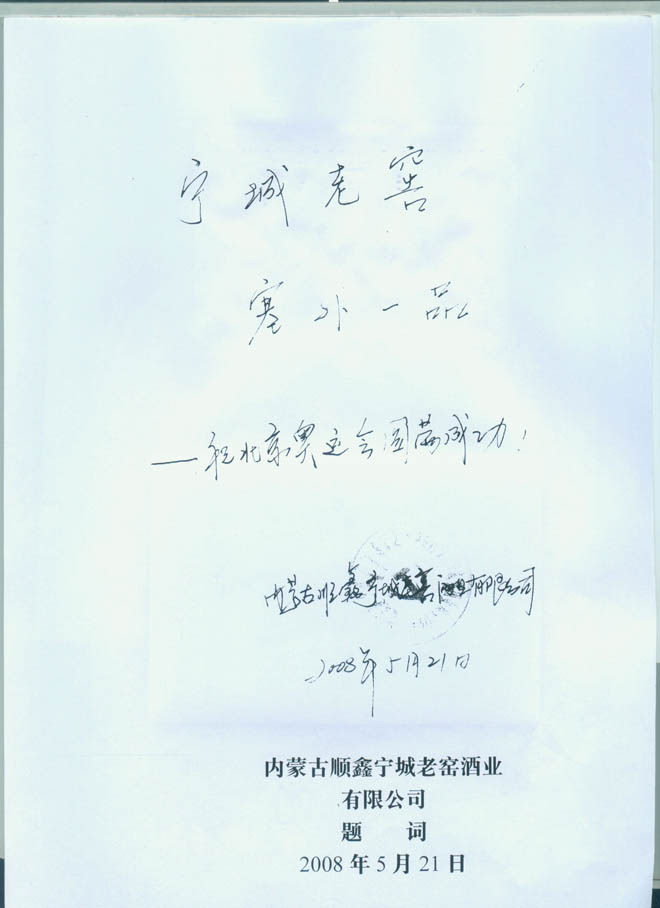 宁城老窖
塞外一品
——祝北京奥运会圆满成功！
内蒙古顺鑫宁城老窖酒业有限公司
2008年5月21日
内蒙古顺鑫宁城老窑酒业
有限公司
题 词
2008年5月21日